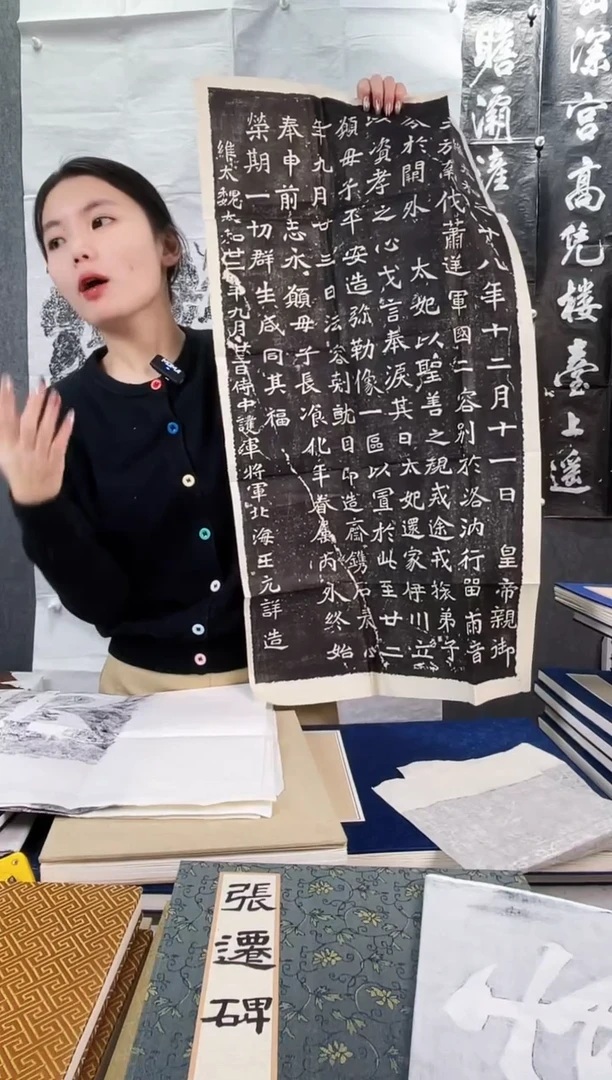 深宮高凭樓臺上遥
瞻灞滻
十八年十二月十一日 皇帝親御
伐蕭逆軍國二容別於洛汭行留兩音
於闕外 太妃以聖善之規戒途戎旅弟子
以資孝之心戈言奉淚其日太妃還家伊川立
願母子平安造弥勒像一區以置於此至廿二
年九月廿三日法容剋就因即造齋鐫石表心
奉申前志永願母子長飡化年眷屬內外終始
榮期一切群生咸同其福
維太魏太和廿二年九月廿三日侍中護軍將軍北海王元詳造
張遷碑